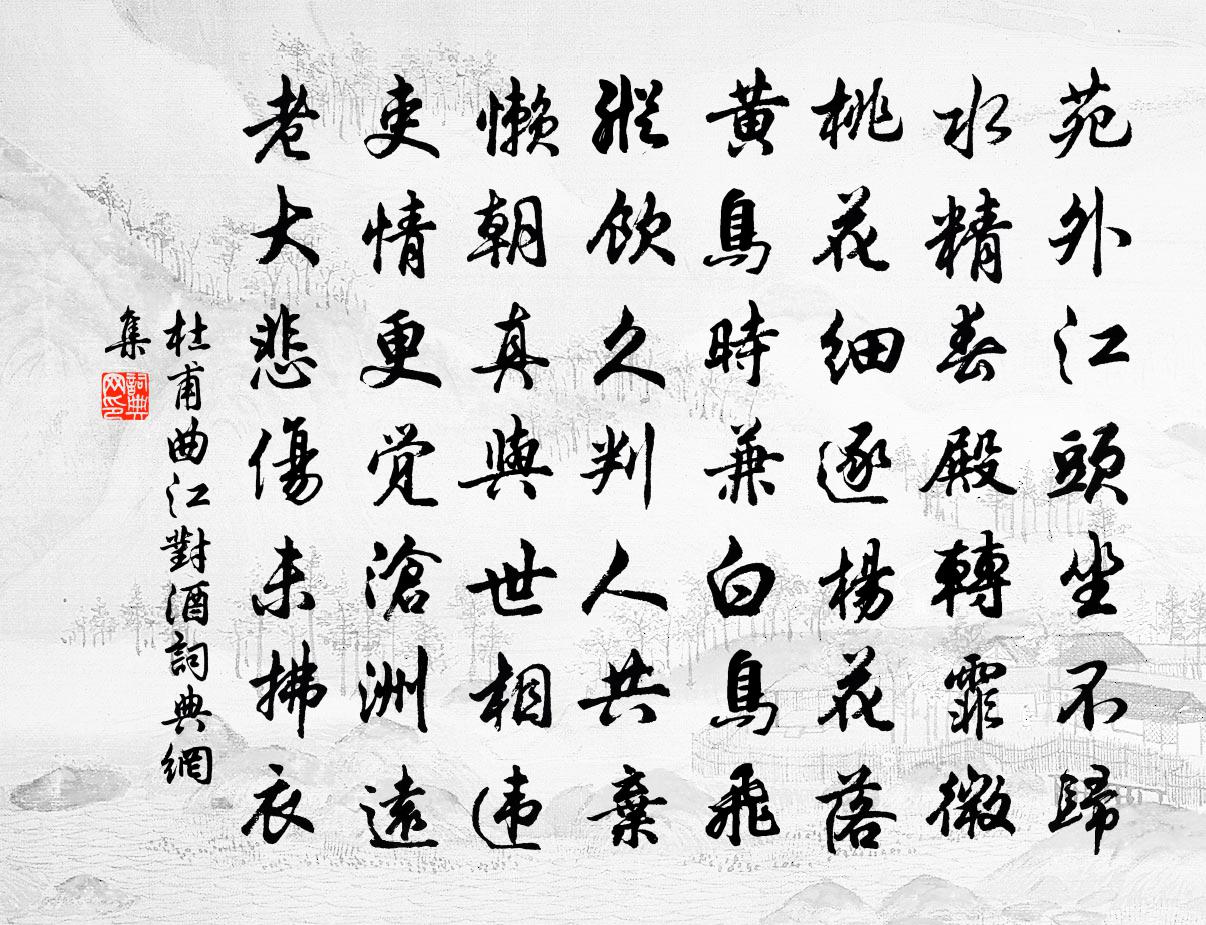 苑外江頭坐不歸
水精春殿轉霏微
桃花細逐楊花落
黄鳥時兼白鳥飛
縱飲久判人共棄
懶朝真與世相違
吏情更覺滄洲遠
老大悲傷未拂衣
杜甫曲江對酒詞典網
集
詞典
网印